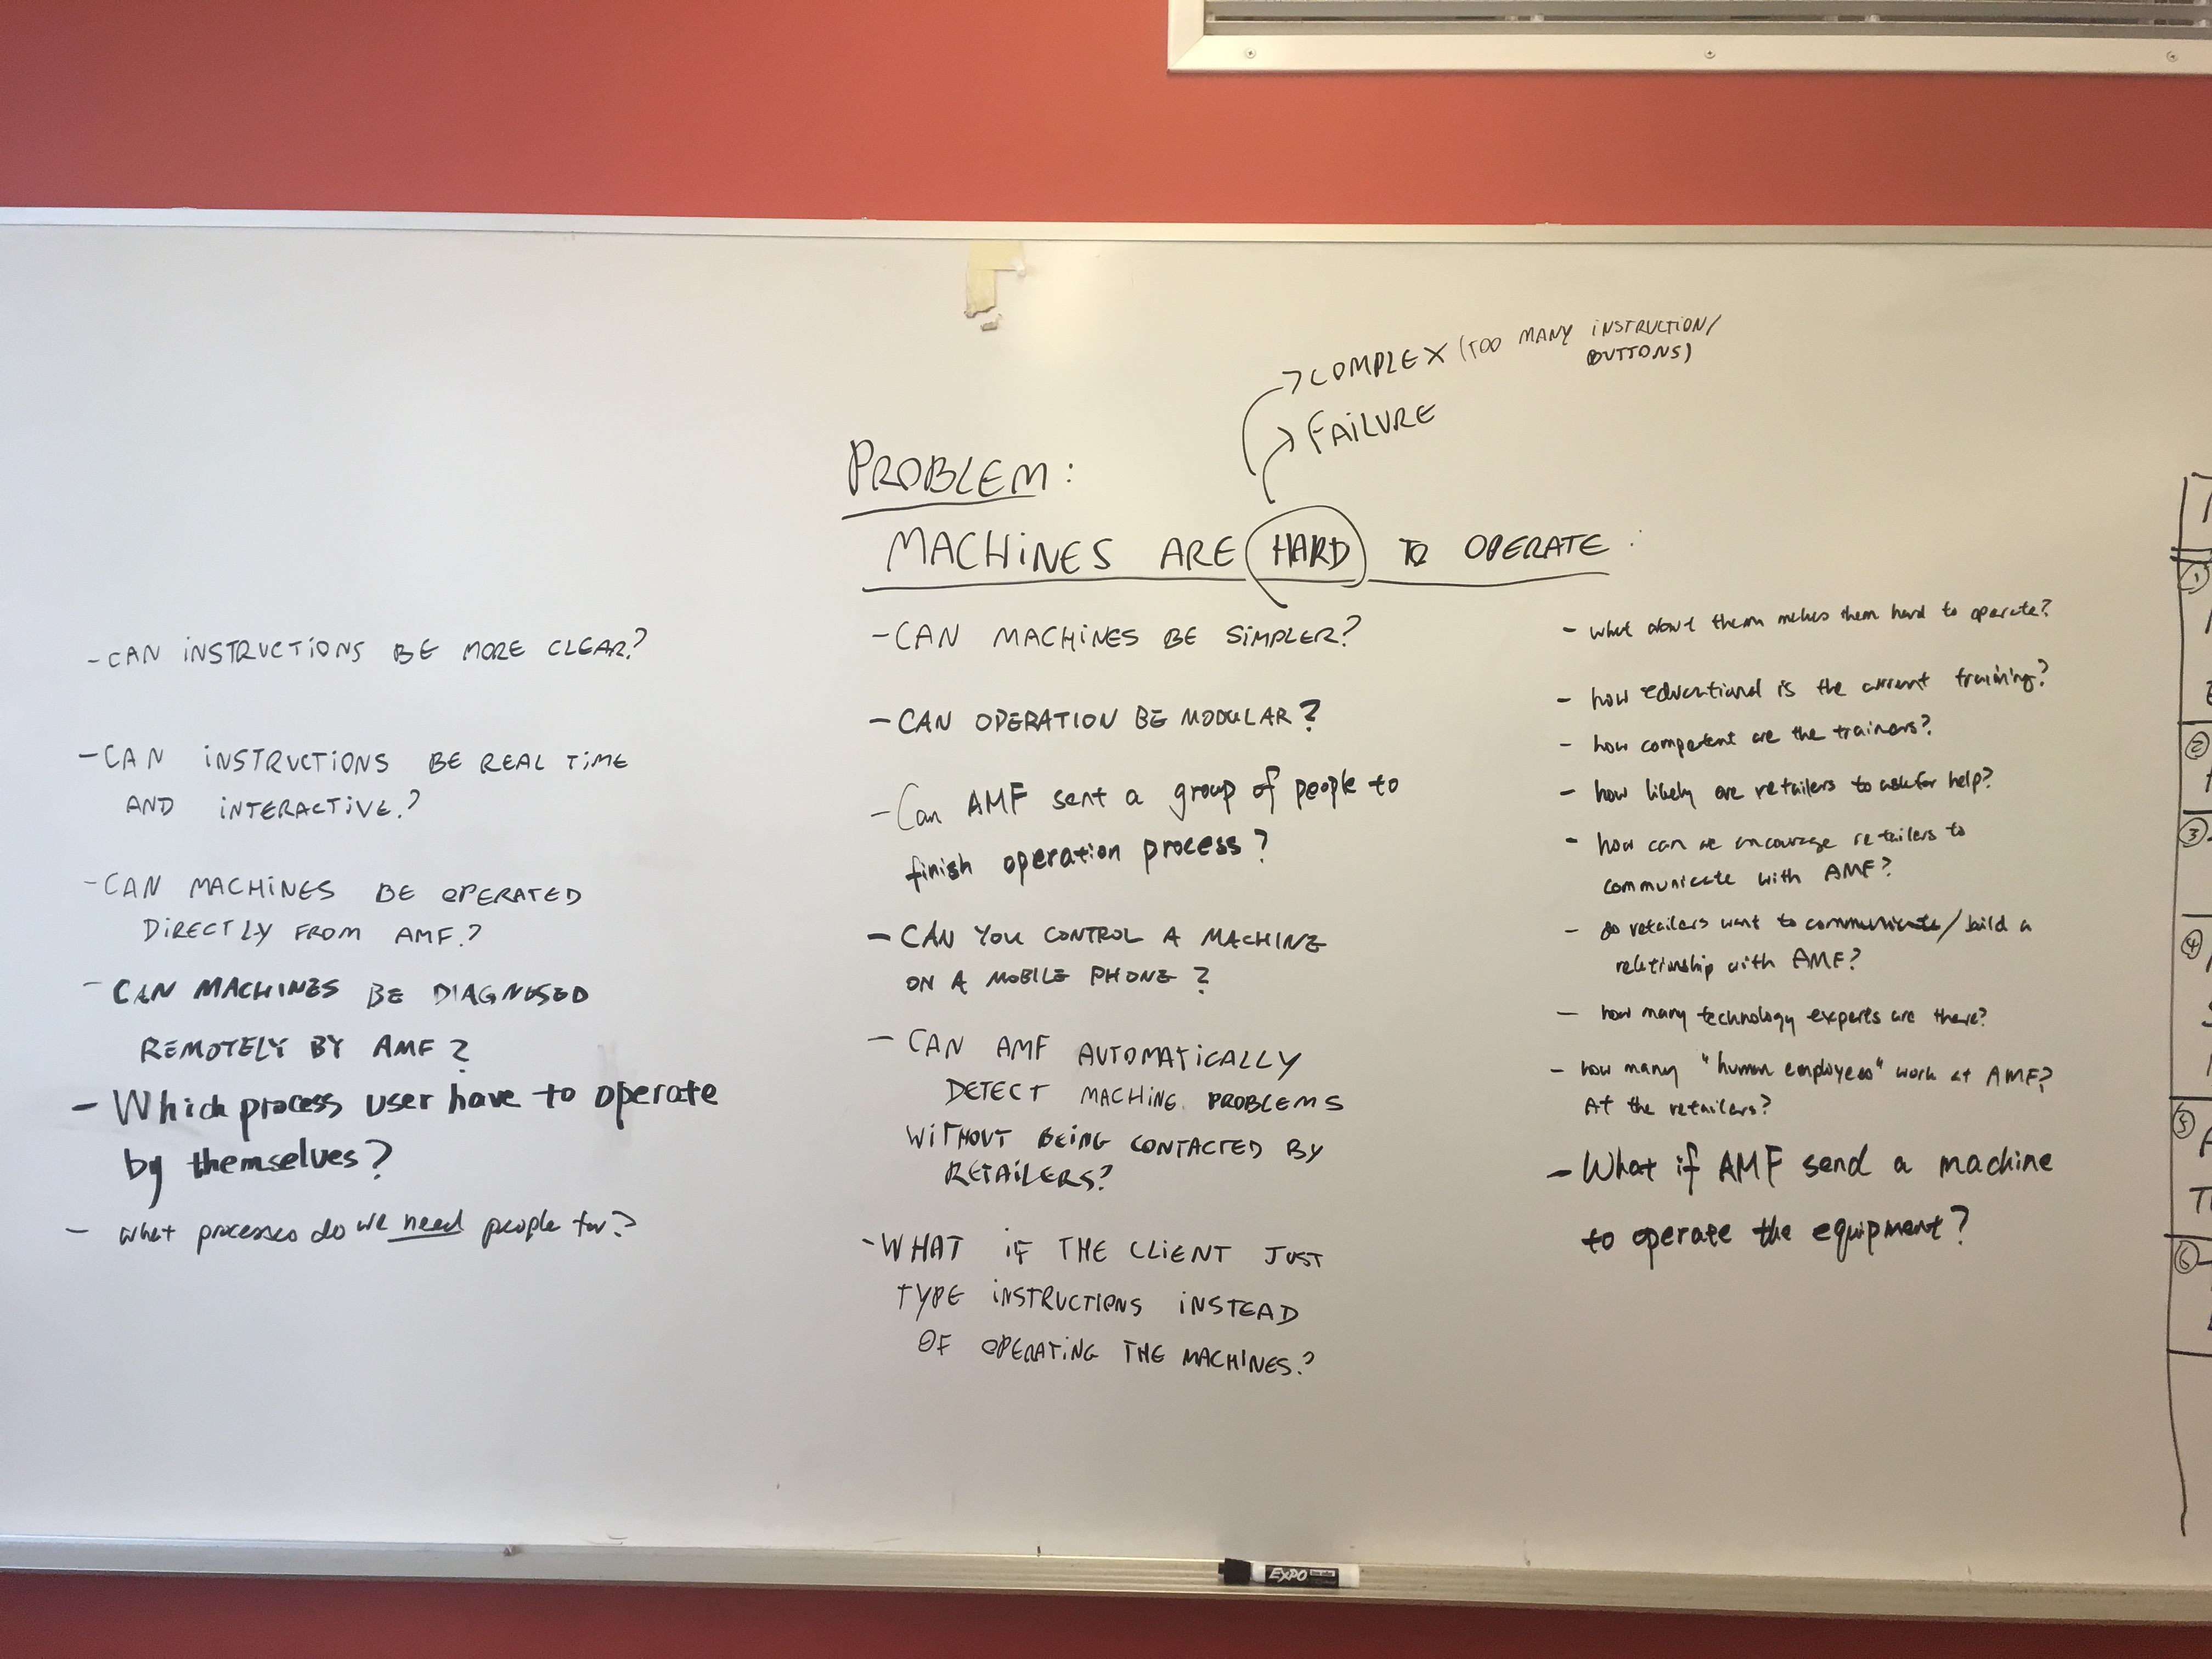 COMPLEX (TOO MANY INSTRUCTION/
BUTTONS)
FAILURE
PROBLEM:
MACHINES ARE HARD TO OPERATE:
-CAN INSTRUCTIONS BE MORE CLEAR?
-CAN INSTRUCTIONS BE REAL TIME
AND INTERACTIVE?
-CAN MACHINES BE OPERATED
DIRECTLY FROM AMF?
-CAN MACHINES BE DIAGNOSED
REMOTELY BY AMF?
- Which process user have to operate
by themselves?
- what processes do we need people for?
-CAN MACHINES BE SIMPLER?
-CAN OPERATION BE MODULAR?
-Can AMF sent a group of people to
finish operation process?
- CAN YOU CONTROL A MACHINE
ON A MOBILE PHONE?
- CAN AMF AUTOMATICALLY
DETECT MACHINE PROBLEMS
WITHOUT BEING CONTACTED BY
RETAILERS?
-WHAT IF THE CLIENT JUST
TYPE INSTRUCTIONS INSTEAD
OF OPERATING THE MACHINES?
- what about them makes them hard to operate?
- how educational is the current training?
- how competent are the trainers?
- how likely are retailers to ask for help?
- how can we encourage retailers to
communicate with AMF?
- do retailers want to communicate/build a
relationship with AMF?
- how many technology experts are there?
- how many "human employees" work at AMF?
At the retailers?
- What if AMF send a machine
to operate the equipment?
1
2
3
4
5
6
EXPO